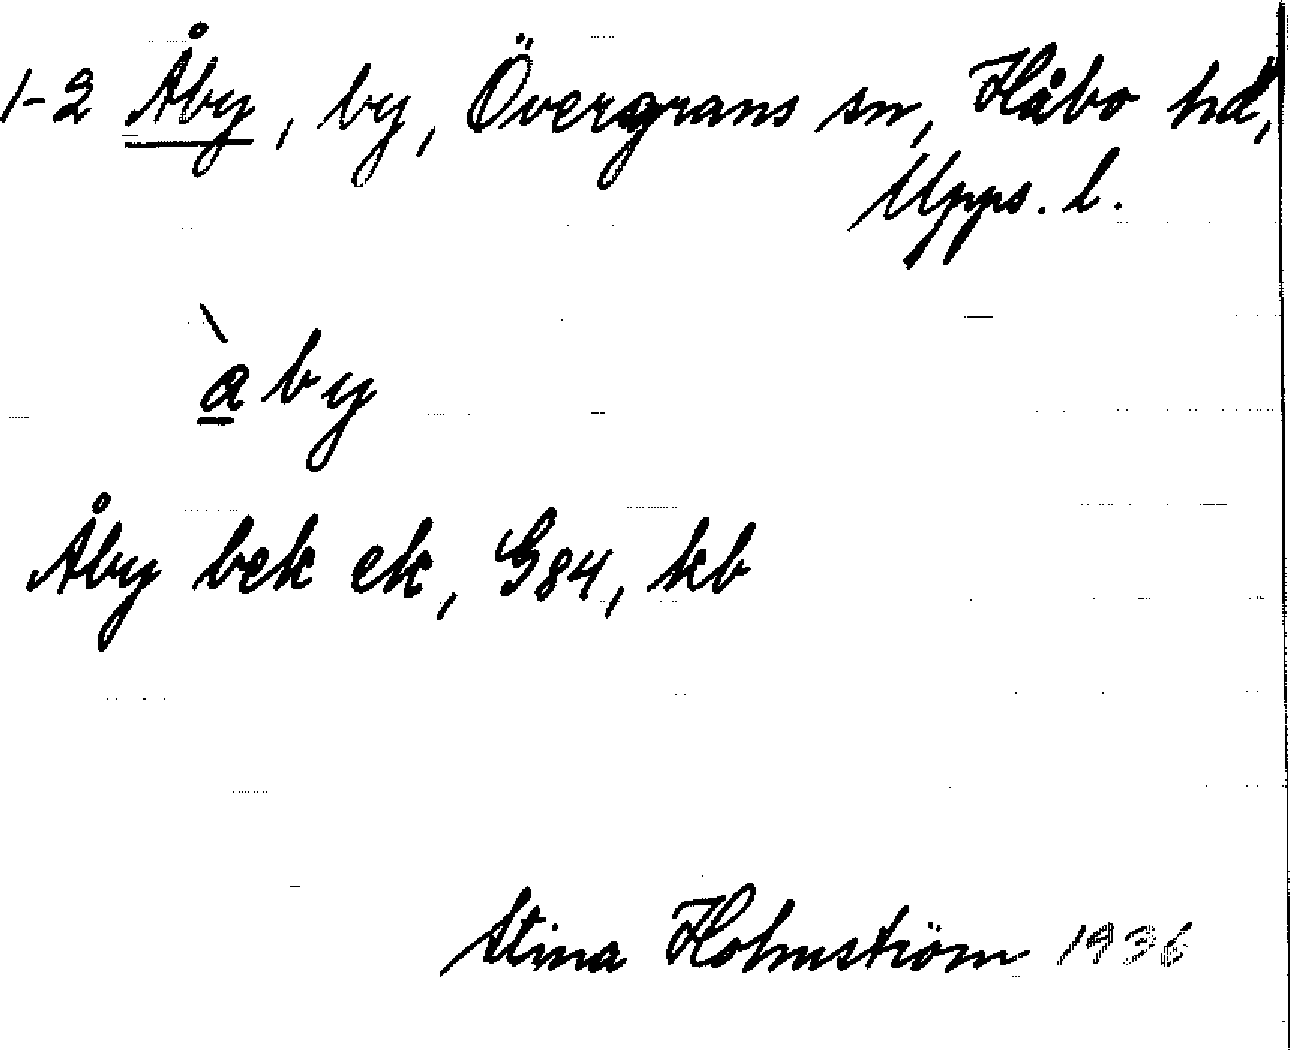 1-2 Åby, by, Övergrans sn, Håbo hd,
Upps. l.
à̱by
Åby bek ek, G84, kb
Stina Holmström 1936